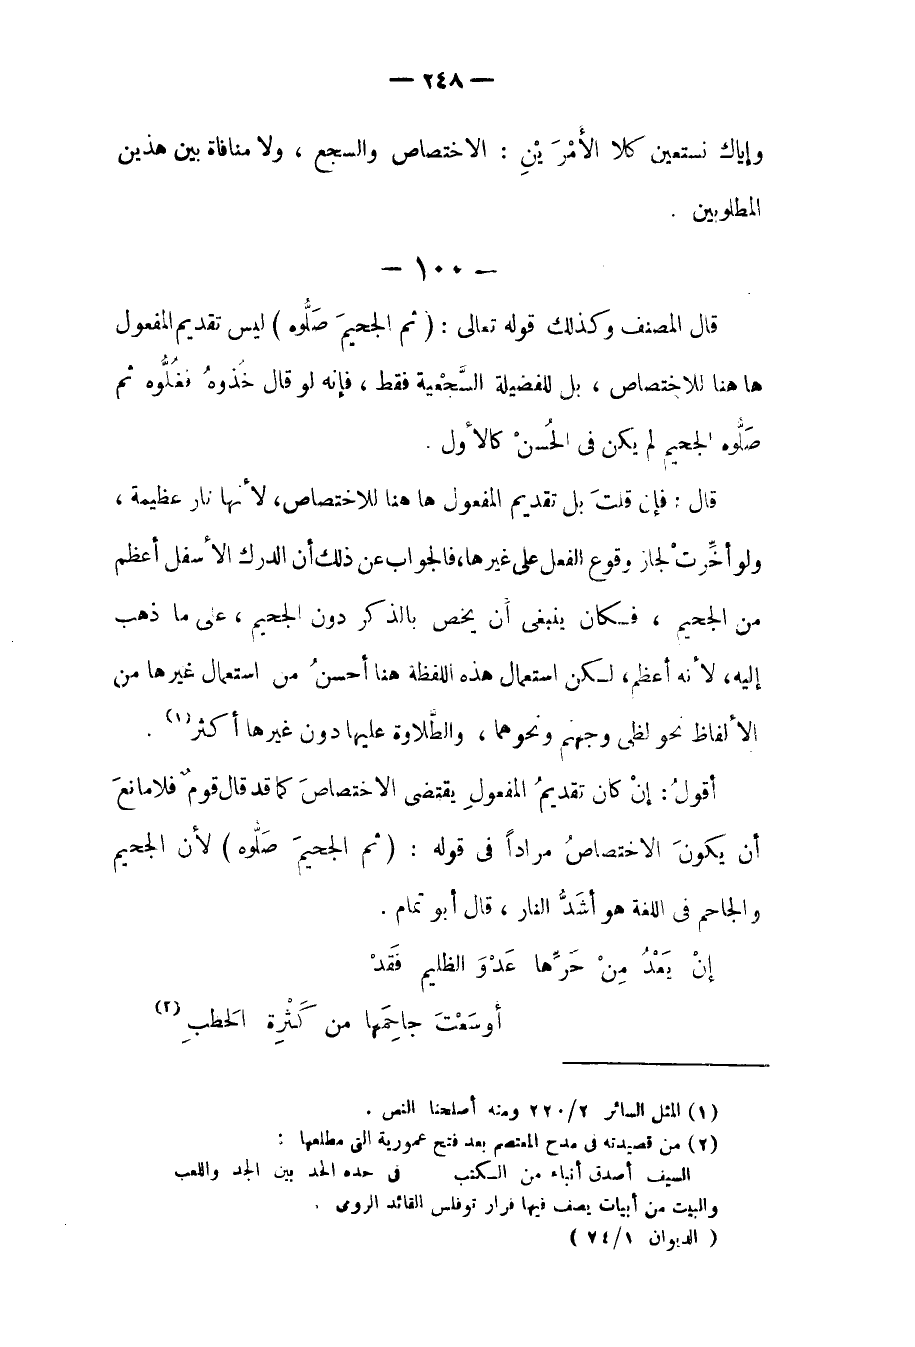 — ٢٤٨ —
وإياك نستعين كلا الأَمْرَيْنِ : الاختصاص والسجع ، ولا منافاة بين هذين
المطلوبين .
— ١٠٠ —
قال المصنف وكذلك قوله تعالى : ( ثم الجحيمَ صَلُّوه ) ليس تقديم المفعول
ها هنا للاختصاص ، بل للفضيلة السَّجْعية فقط ، فإنه لو قال خُذوهُ فغُلُّوه ثم
صَلُّوه الجحيم لم يكن فى الحُسنْ كالأول .
قال : فإن قلتَ بل تقديم المفعول ها هنا للاختصاص، لأنها نار عظيمة ،
ولو أخِّرتْ لجاز وقوع الفعل على غيرها، فالجواب عن ذلك أن الدرك الأسفل أعظم
من الجحيم ، فكان ينبغى أن يخص بالذكر دون الجحيم ، على ما ذهب
إليه، لأنه أعظم، لكن استعمال هذه اللفظة هنا أحسنُ من استعمال غيرها من
الألفاظ نحو لظى وجهنم ونحوهما ، والطَّلاوة عليها دون غيرها أكثر(١) .
أقولُ : إنْ كان تقديمُ المفعولِ يقتضى الاختصاصَ كما قد قال قومٌ فلا مانعَ
أن يكونَ الاختصاصُ مراداً فى قوله : ( ثم الجحيمَ صَلُّوه ) لأن الجحيم
والجاحم فى اللغة هو أشَدُّ النار ، قال أبو تمام .
إنْ يَعْدُ مِنْ حَرِّها عَدْوَ الظليم فَقَدْ
أوسَعْتَ جاحِمَها من كَثْرِة الحطبِ(٢)
(١) المثل السائر ٢/٢٢٠ ومنه أصلحنا النص .
(٢) من قصيدته فى مدح المعتصم بعد فتح عمورية التى مطلعها :
السيف أصدق أنباء من الكتب فى حده الحد بين الجد واللعب
والبيت من أبيات يصف فيها فرار توفلس القائد الرومى .
( الديوان ١/٧٤ )